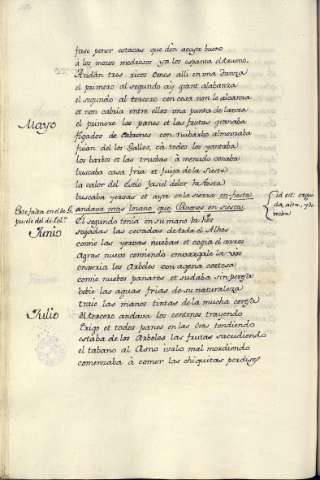 fase poner estacas que den azeyte bueno
á los mozos medrosos ya los espanta el trueno.
Andan tres ricos Omes alli en una danza
el primero al segundo ay grant alabanza
el segundo al tercero con cosa non le alcanza
et non cabria entre ellos una punta de lanza
Mayo
el primero los panes et las frutas granaba
fígados de Cabrones con ruibarbo almorzaba
fuian del los Gallos, ca todos los yantaba
los barbos et las truchas à menudo cenaba
buscaba casa fria et fuya de la siesta
la calor del Estío doliel dolor la testa
buscaba yerbas et ayre en la sierra enfiesta
andava mas lozano que Pavones en siesta
El segundo tenia en su mano la hoz
Junio
segadas las cevadas de todo el Alhoz
comie las yerbas nuebas et cogia el arroz
Agras nuevas comiendo embargole la voz
enxeria los Arboles con agena corteza
comie nuebos panares et sudaba sin pereza
bebie las aguas frias de su naturaleza
traie las manos tintas de la mucha cereza
Julio
El tercero andava los centenos trayendo
trigo et todos panes en las eras tendiendo
estaba de los Arboles las frutas sacudiendo
el tabano al Asno malo mal mordiendo
comenzaba à comer las chiquitas perdizes